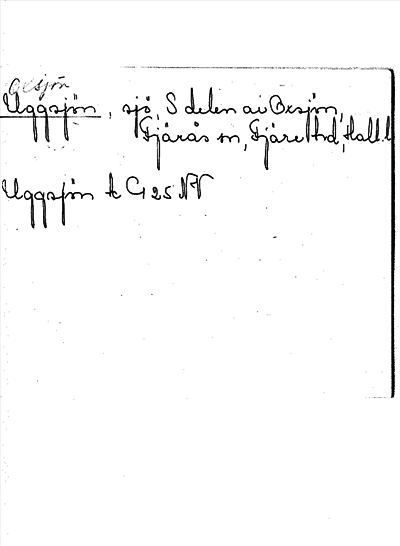 Oxsjön
Uggsjön, sjö, S delen av Oxsjön,
Fjärås sn, Fjäre hd, Hall.l
Uggsjön tc G 25 NV